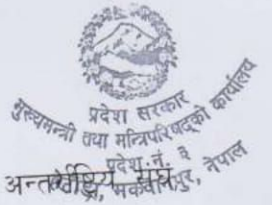 प्रदेश सरकार
मुख्यमन्त्री तथा मन्त्रिपरिषद्को कार्यालय
प्रदेश नं. ३
मकवानपुर, नेपाल
अन्तर्राष्ट्रिय संघ